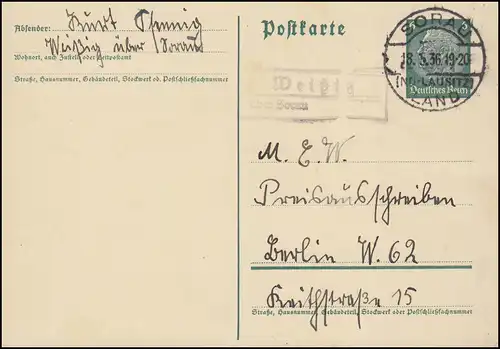 Absender: Kurt Pfennig
Weißig über Sorau
Wohnort, auch Zustell- oder Leitpostamt
Straße, Hausnummer, Gebäudeteil, Stockwerk od. Postschließfachnummer
Postkarte
SORAU
18.5.36.19-20
(ND.-LAUSITZ)
LAND
Deutsches Reich
Weißig
über Sorau
M. E. W.
Preisausschreiben
Berlin W. 62
Keithstraße 15
Straße, Hausnummer, Gebäudeteil, Stockwerk oder Postschließfachnummer